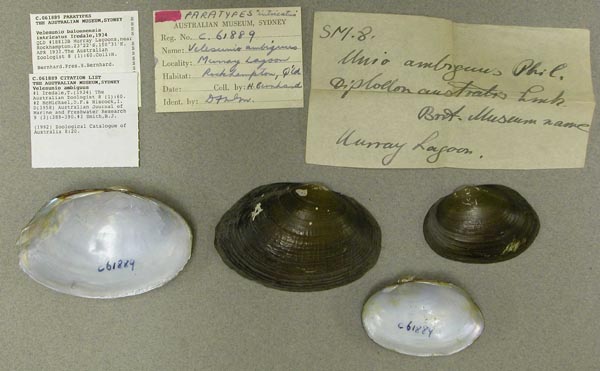 C.061889 PARATYPES
THE AUSTRALIAN MUSEUM, SYDNEY
Velesunio balonnensis
intricatus Iredale, 1934
QLD Murray Lagoons, near
Rockhampton, 23°22'S, 150°31'E,
APR 1932. The Australian
Zoologist 8 (1):60. Coll: H.
Bernhard. Pres: H. Bernhard.
C.061889 CITATION LIST
THE AUSTRALIAN MUSEUM, SYDNEY
Velesunio ambiguus
#1 Iredale, T. (1934) The
Australian Zoologist 8 (1):60.
#2 McMichael, D.F. & Hiscock, I.
D. (1958) Australian Journal of
Marine and Freshwater Research
9 (3):389-390. #3 Smith, B.J.
(1992) Zoological Catalogue of
Australia 8:20.
PARATYPES "intricatus"
AUSTRALIAN MUSEUM, SYDNEY
Reg. No. C.61889
Name: Velesunio ambiguus
Locality: Murray Lagoon
Habitat: Rockhampton, Q'ld
Date: Coll. by: H. Bernhard
Ident. by:
SM.8.
Unio ambiguus Phil.
Diplodon australis Lmk
Brit. Museum name
Murray Lagoon.
C61889
C61889